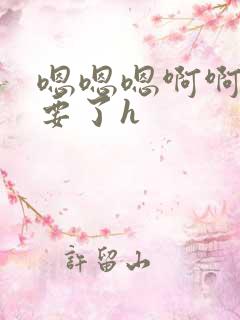 嗯嗯嗯啊啊
要了h
許留山